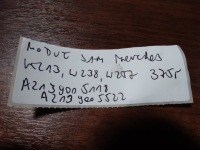 MODUŁ SAM Mercedes
W213, W238, W257 375zł
A213 900 5118
A213 900 5522